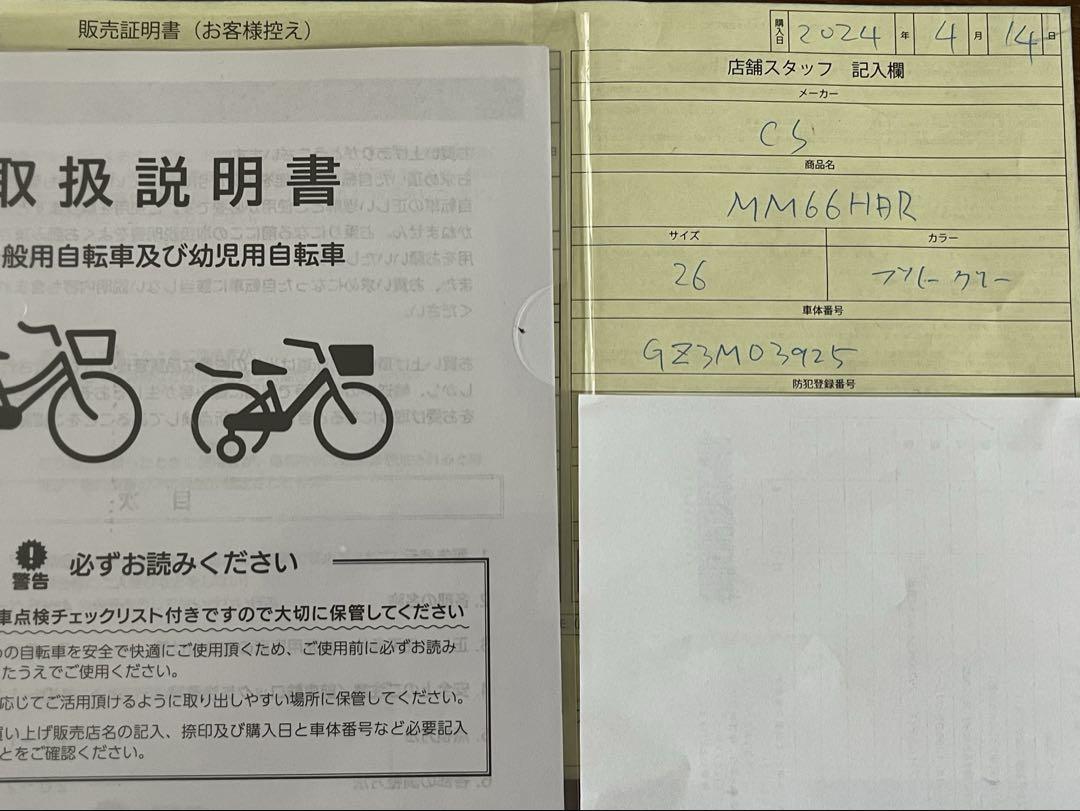 販売証明書（お客様控え）
購入日 2024 年 4 月 14 日
店舗スタッフ 記入欄
メーカー
CS
商品名
MM66HAR
サイズ
26
カラー
車体番号
GZ3M03925
防犯登録番号
取扱説明書
般用自転車及び幼児用自転車
警告
必ずお読みください
車点検チェックリスト付きですので大切に保管してください
の自転車を安全で快適にご使用頂くため、ご使用前に必ずお読み
たうえでご使用ください。
応じてご活用頂けるように取り出しやすい場所に保管してください。
買い上げ販売店名の記入、捺印及び購入日と車体番号など必要記入
とをご確認ください。